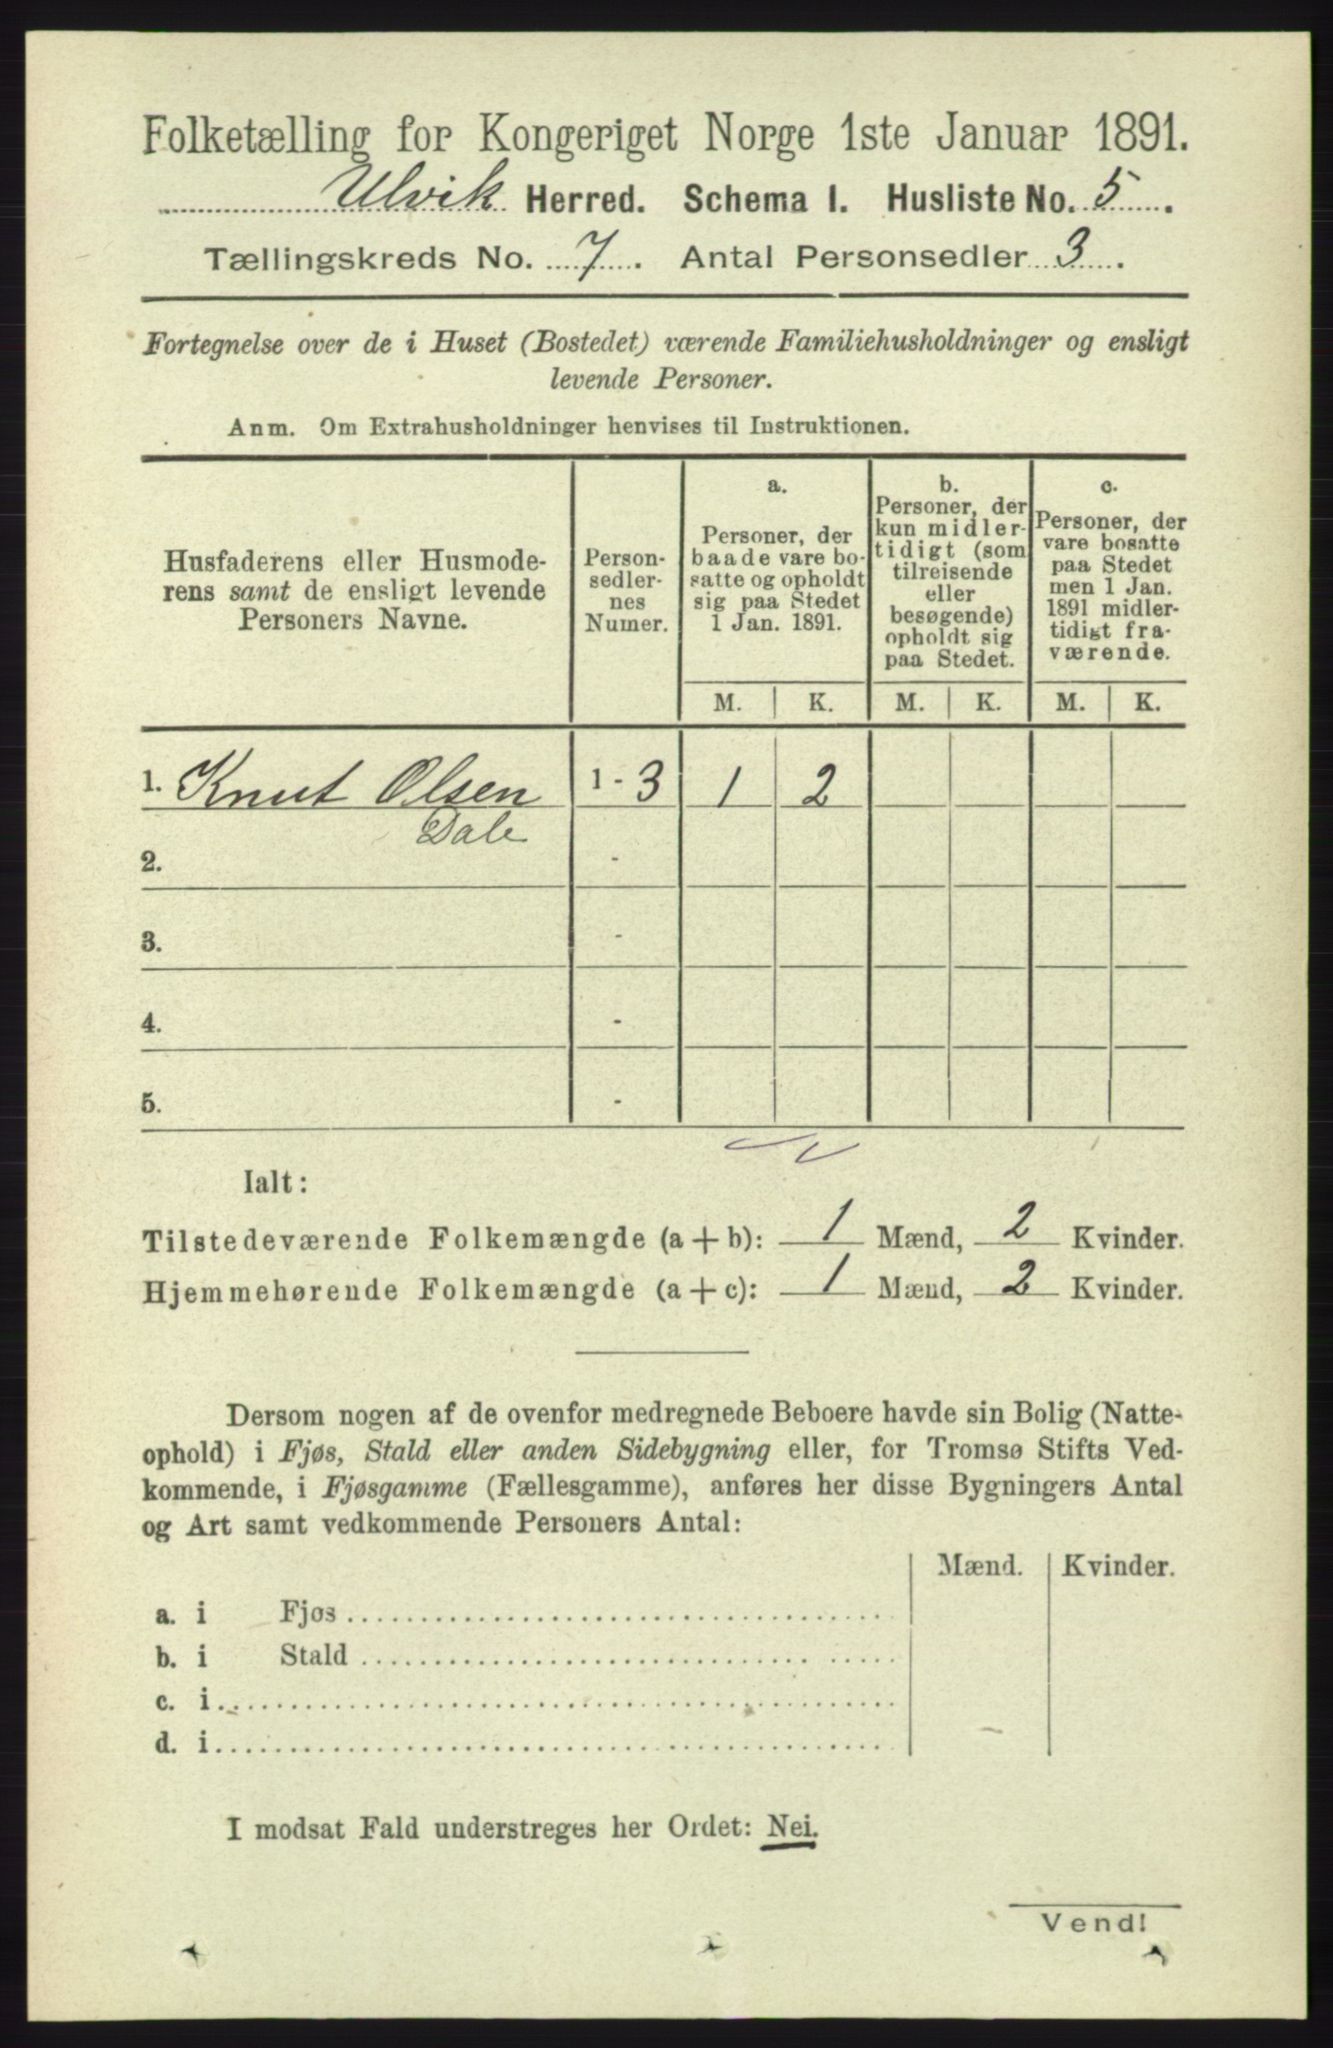 Folketælling for Kongeriget Norge 1ste Januar 1891.
Ulvik Herred. Schema I. Husliste No. 5.
Tællingskreds No. 7. Antal Personsedler 3.
Fortegnelse over de i Huset (Bostedet) værende Familiehusholdninger og ensligt
levende Personer.
Anm. Om Extrahusholdninger henvises til Instruktionen.
Husfaderens eller Husmode-
rens samt de ensligt levende
Personers Navne.
Person-
sedler-
nes
Numer.
a.
Personer, der
baade vare bo-
satte og opholdt
sig paa Stedet
1 Jan. 1891.
b.
Personer, der
kun midler-
tidigt (som
tilreisende
eller
besøgende)
opholdt sig
paa Stedet.
c.
Personer, der
vare bosatte
paa Stedet
men 1 Jan.
1891 midler-
tidigt fra-
værende.
M. K. M. K. M. K.
1. Knut Olsen 1 - 3 1 2
Dale
2. -
3. -
4. -
5. -
Ialt:
Tilstedeværende Folkemængde (a + b): 1 Mænd, 2 Kvinder.
Hjemmehørende Folkemængde (a + c): 1 Mænd, 2 Kvinder.
Dersom nogen af de ovenfor medregnede Beboere havde sin Bolig (Natte-
ophold) i Fjøs, Stald eller anden Sidebygning eller, for Tromsø Stifts Ved-
kommende, i Fjøsgamme (Fællesgamme), anføres her disse Bygningers Antal
og Art samt vedkommende Personers Antal:
Mænd. Kvinder.
a. i Fjøs
b. i Stald
c. i
d. i
I modsat Fald understreges her Ordet: Nei.
Vend!